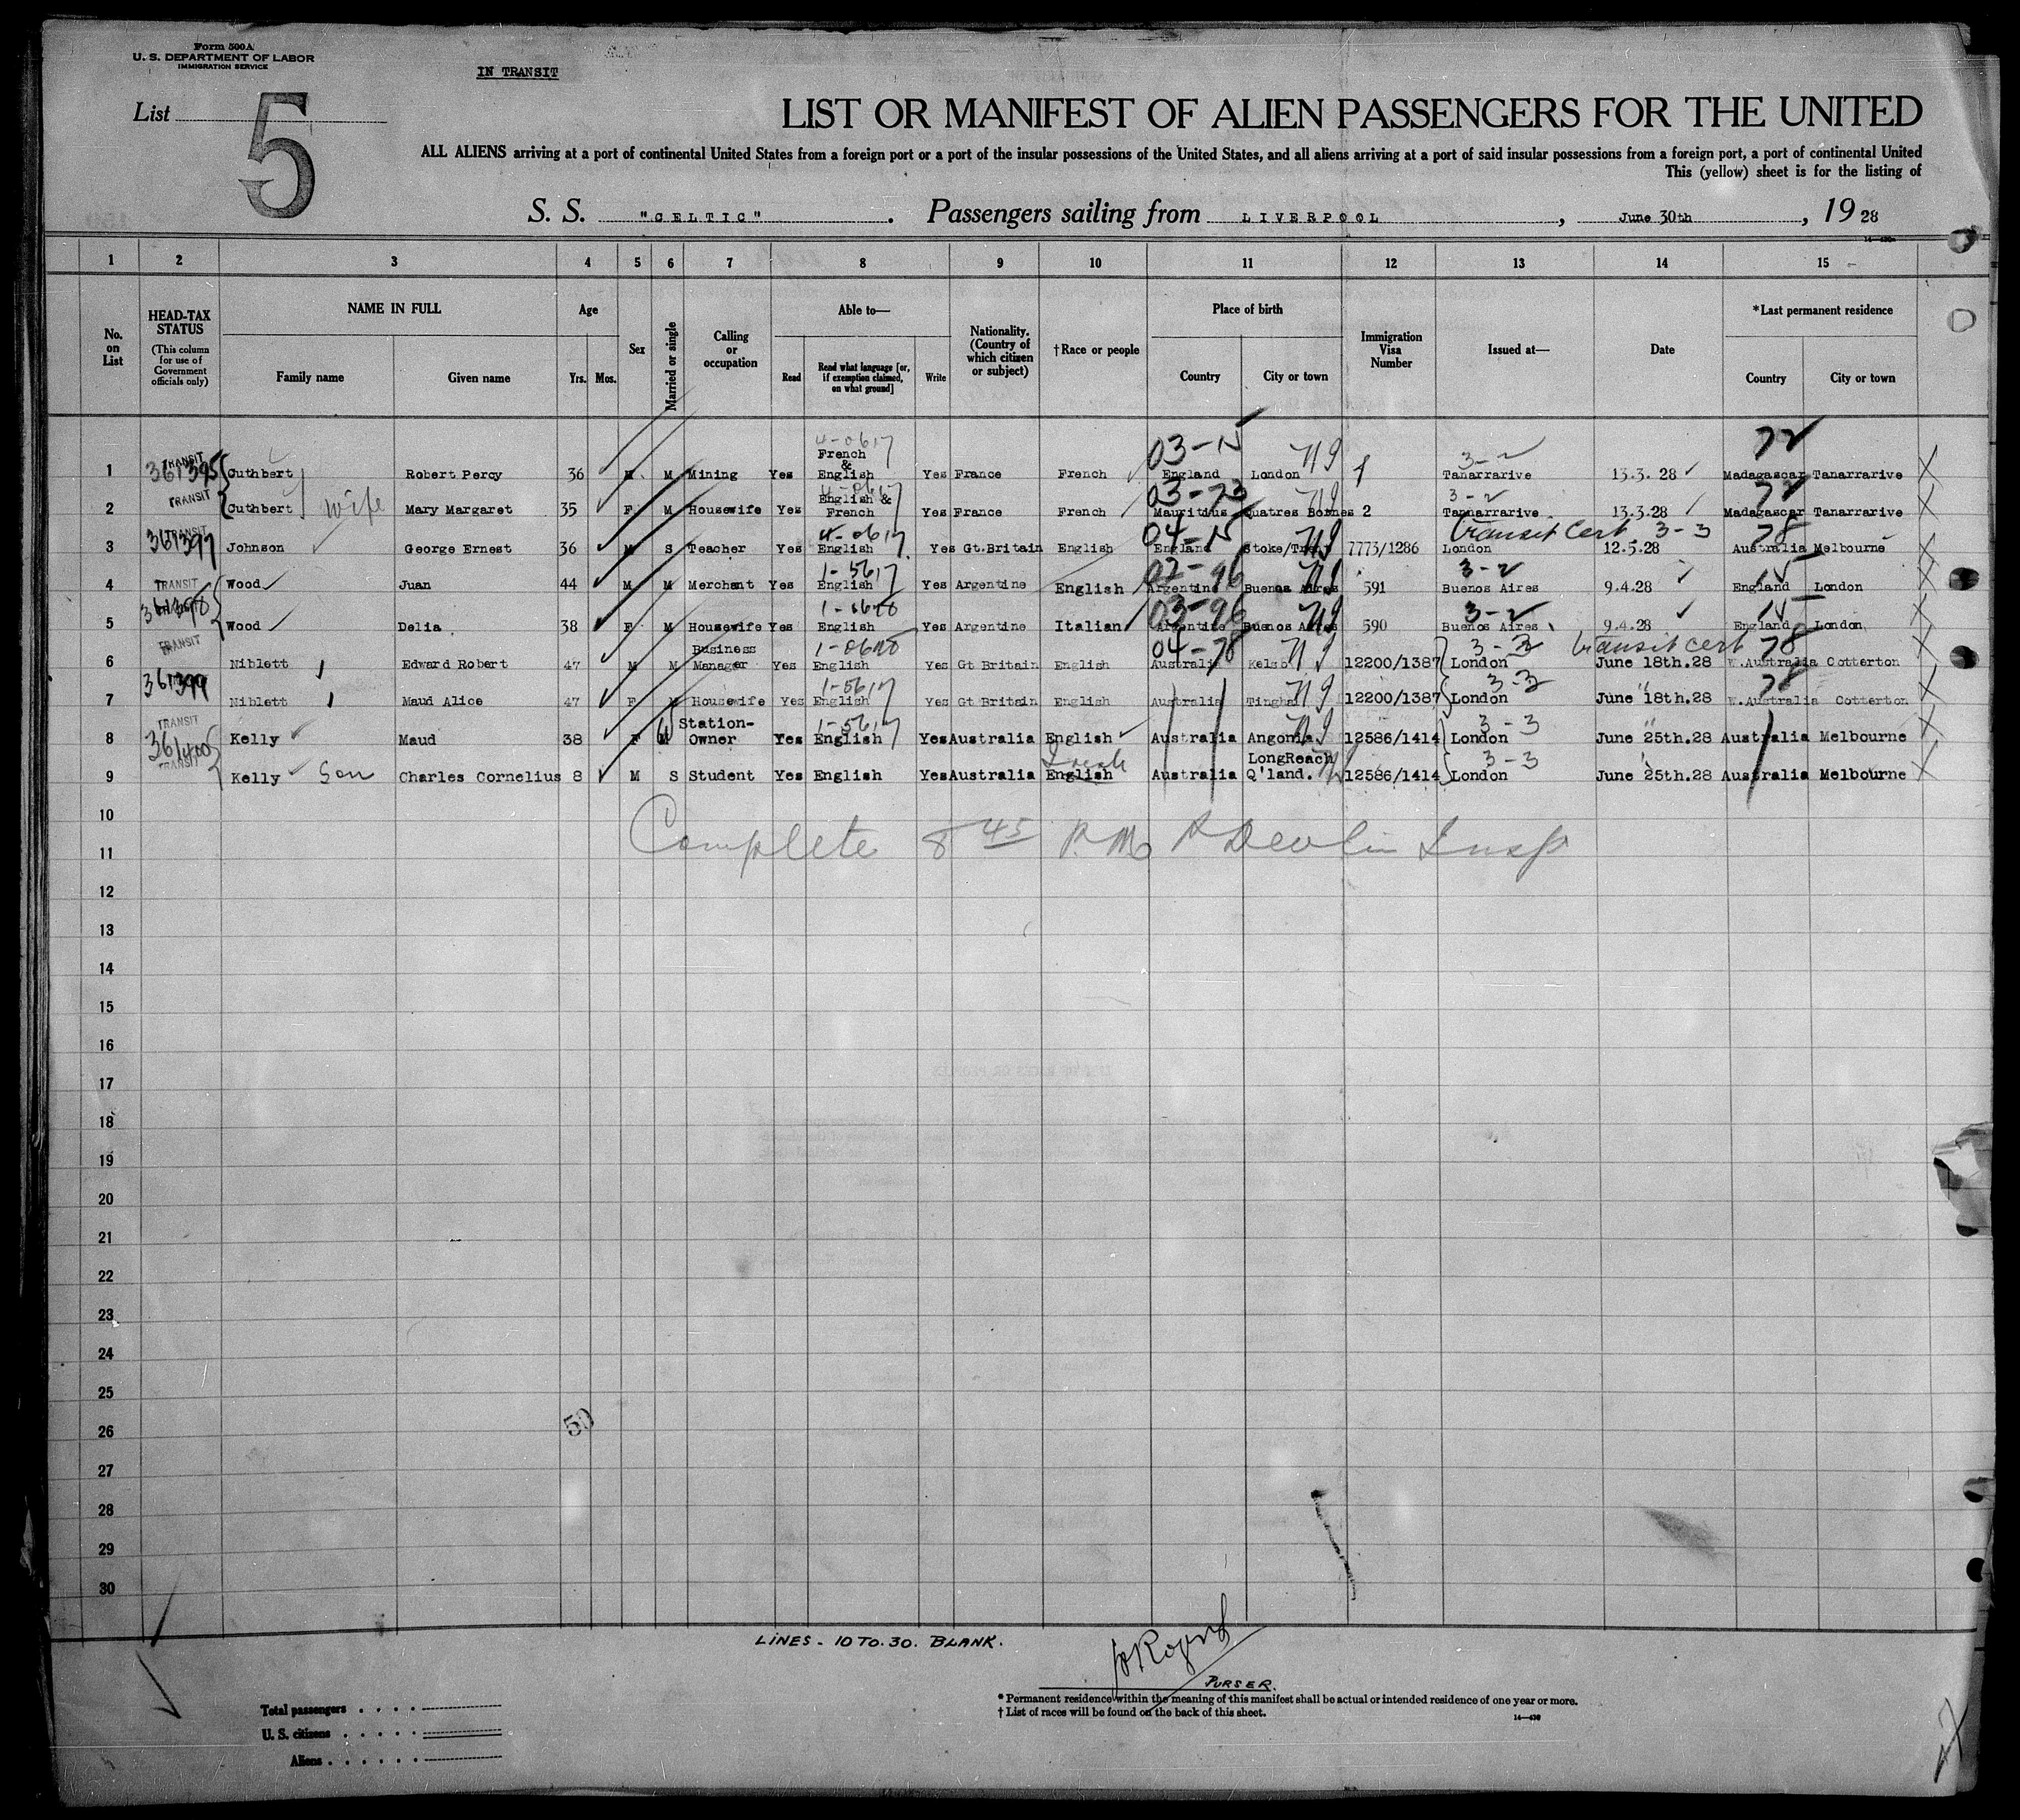 Form 500A
U. S. DEPARTMENT OF LABOR
IMMIGRATION SERVICE
IN TRANSIT
List 5
LIST OR MANIFEST OF ALIEN PASSENGERS FOR THE UNITED
ALL ALIENS arriving at a port of continental United States from a foreign port or a port of the insular possessions of the United States, and all aliens arriving at a port of said insular possessions from a foreign port, a port of continental United
This (yellow) sheet is for the listing of
S. S. "CELTIC" . Passengers sailing from LIVERPOOL , June 30th , 19 28
1 2 3 4 5 6 7 8 9 10 11 12 13 14 15
No. on List
HEAD-TAX STATUS (This column for use of Government officials only)
NAME IN FULL Family name Given name
Age Yrs. Mos.
Sex
Married or single
Calling or occupation
Able to— Read Read what language [or, if exemption claimed, on what ground] Write
Nationality. (Country of which citizen or subject)
†Race or people
Place of birth Country City or town
Immigration Visa Number
Issued at—
Date
*Last permanent residence Country City or town
4-0617 03-15 719 3-2 72
1 TRANSIT 361395 Cuthbert Robert Percy 36 M M Mining Yes French & English Yes France French England London 1 Tanarrarive 13.3.28 Madagascar Tanarrarive
03-73 719 3-2 72
2 TRANSIT Cuthbert wife Mary Margaret 35 F M Housewife Yes English & French Yes France French Mauritius Quatres Bornes 2 Tannarrarive 13.3.28 Madagascar Tanarrarive
4-0617 04-15 Transit Cert 3-3 78
3 TRANSIT 361397 Johnson George Ernest 36 M S Teacher Yes English Yes Gt.Britain English England Stoke/Trent 7773/1286 London 12.5.28 Australia Melbourne
1-5617 02-96 719 3-2 15
4 TRANSIT Wood Juan 44 M M Merchant Yes English Yes Argentine English Argentine Buenos Aires 591 Buenos Aires 9.4.28 England London
03-96 719 3-2 15
5 361398 Wood Delia 38 F M Housewife Yes English Yes Argentine Italian Argentine Buenos Aires 590 Buenos Aires 9.4.28 England London
04-78 3-3 transit cert 78
6 TRANSIT Niblett Edward Robert 47 M M Business Manager Yes English Yes Gt Britain English Australia Kelso 12200/1387 London June 18th.28 W.Australia Cotterton
1-5617 719 3-3 78
7 361399 Niblett Maud Alice 47 F M Housewife Yes English Yes Gt Britain English Australia Tingha 12200/1387 London June 18th.28 W.Australia Cotterton
1-5617 719 3-3
8 TRANSIT 361400 Kelly Maud 38 F W Station-Owner Yes English Yes Australia English Australia 12586/1414 London June 25th.28 Australia Melbourne
Irish 3-3
9 TRANSIT Kelly Son Charles Cornelius 8 M S Student Yes English Yes Australia English Australia LongReach Q'land. 12586/1414 London June 25th.28 Australia Melbourne
10
Complete 8 45 P.M. Devlin Insp
11
12
13
14
15
16
17
18
19
20
21
22
23
24
25
26
50
27
28
29
30
LINES - 10 TO. 30. BLANK.
Rogers
PURSER.
Total passengers
U. S. citizens
Aliens
* Permanent residence within the meaning of this manifest shall be actual or intended residence of one year or more.
† List of races will be found on the back of this sheet.
14—430